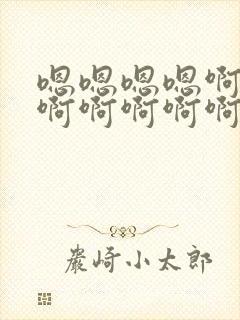 嗯嗯嗯嗯啊
啊啊啊啊啊
巖崎小太郎